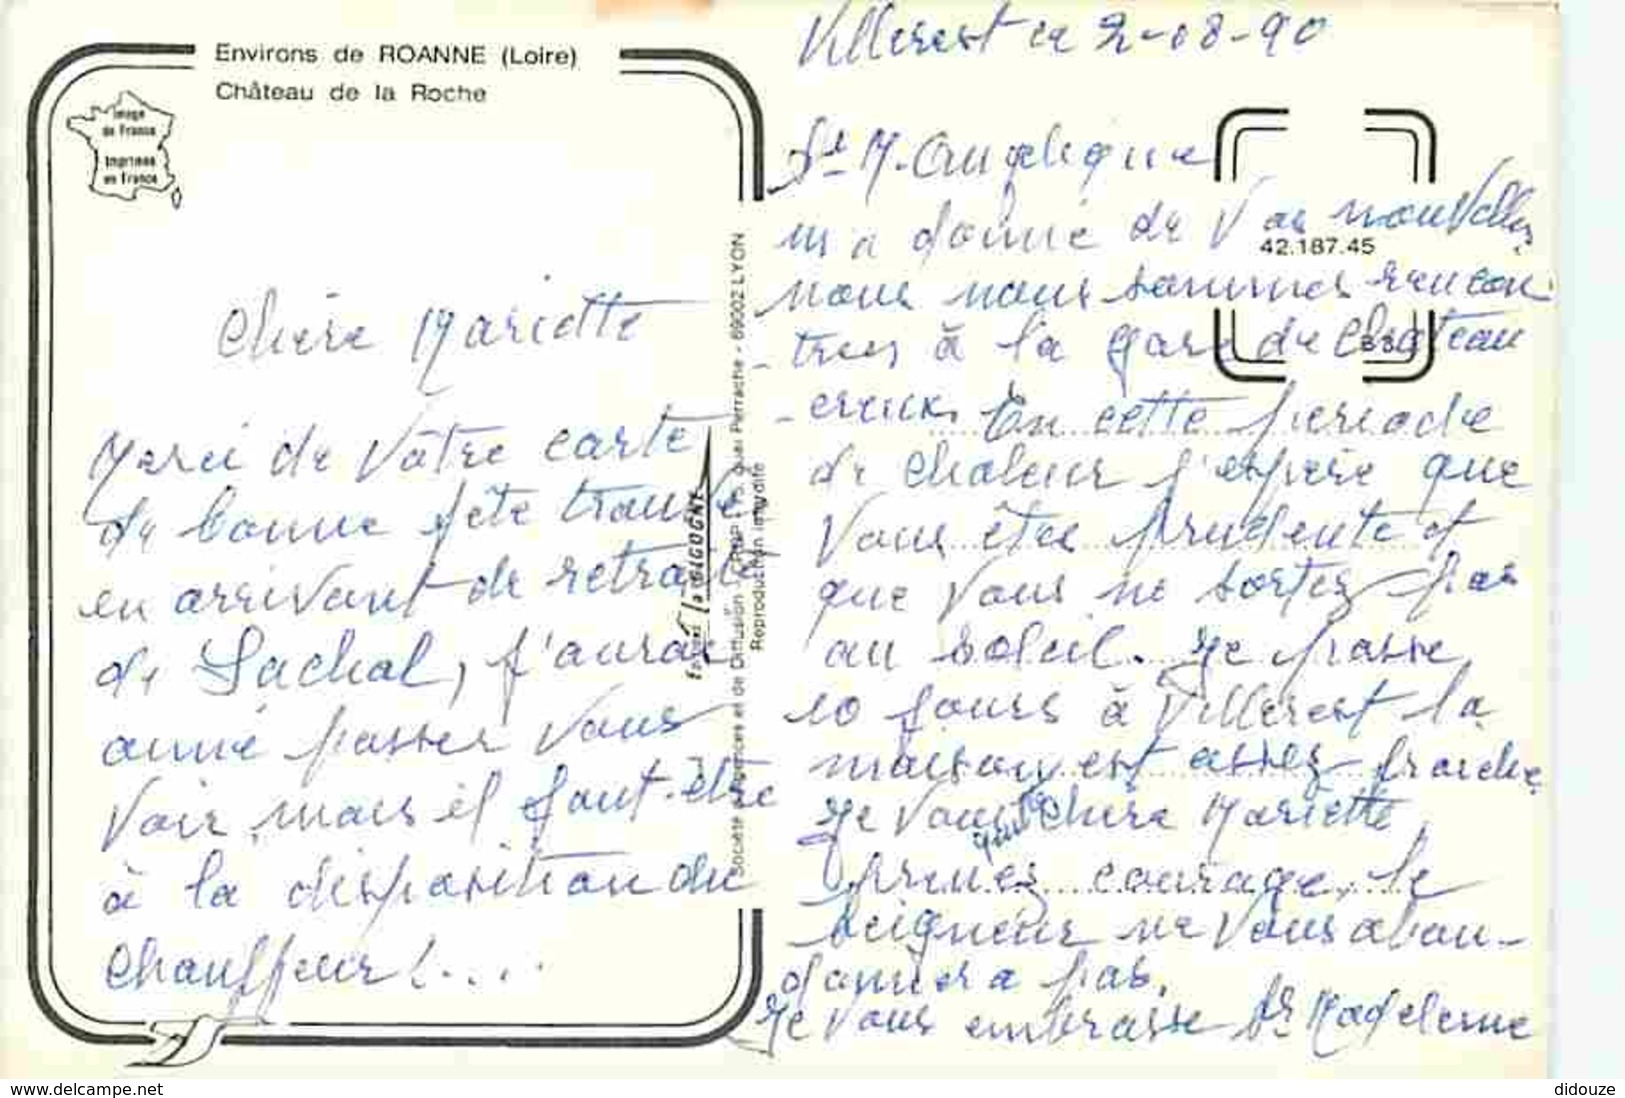 Environs de ROANNE (Loire)
Château de la Roche
Image
de France
Imprimée
en France
Chère Mariette
Merci de Vôtre carte
de bonne fête trouvé
en arrivant de retraite
de Lachal, j'aurai
aimé passer Vous
Voir, mais il faut-être
à la disposition du
Chauffeur !....
69002 LYON
quai Perrache
Reproduction interdite
la CIGOGNE
Villerest ce 2-08-90
Sr M. Angélique
m'a donné de Vos nouVelles
nous nous sommes rencon
trées à la gare de Chateau
creux. En cette periode
de Chaleur j'espère que
Vous êtes prudente et
que Vous ne sortez pas
au soleil. Je passe
10 jours à Villerest la
maison est assez fraiche
Je Vous Chère Mariette,
prenez courage, le
seigneur ne Vous aban-
donnera pas.
Je Vous embrasse Sr Madeleine
42.187.45
www.delcampe.net
didouze